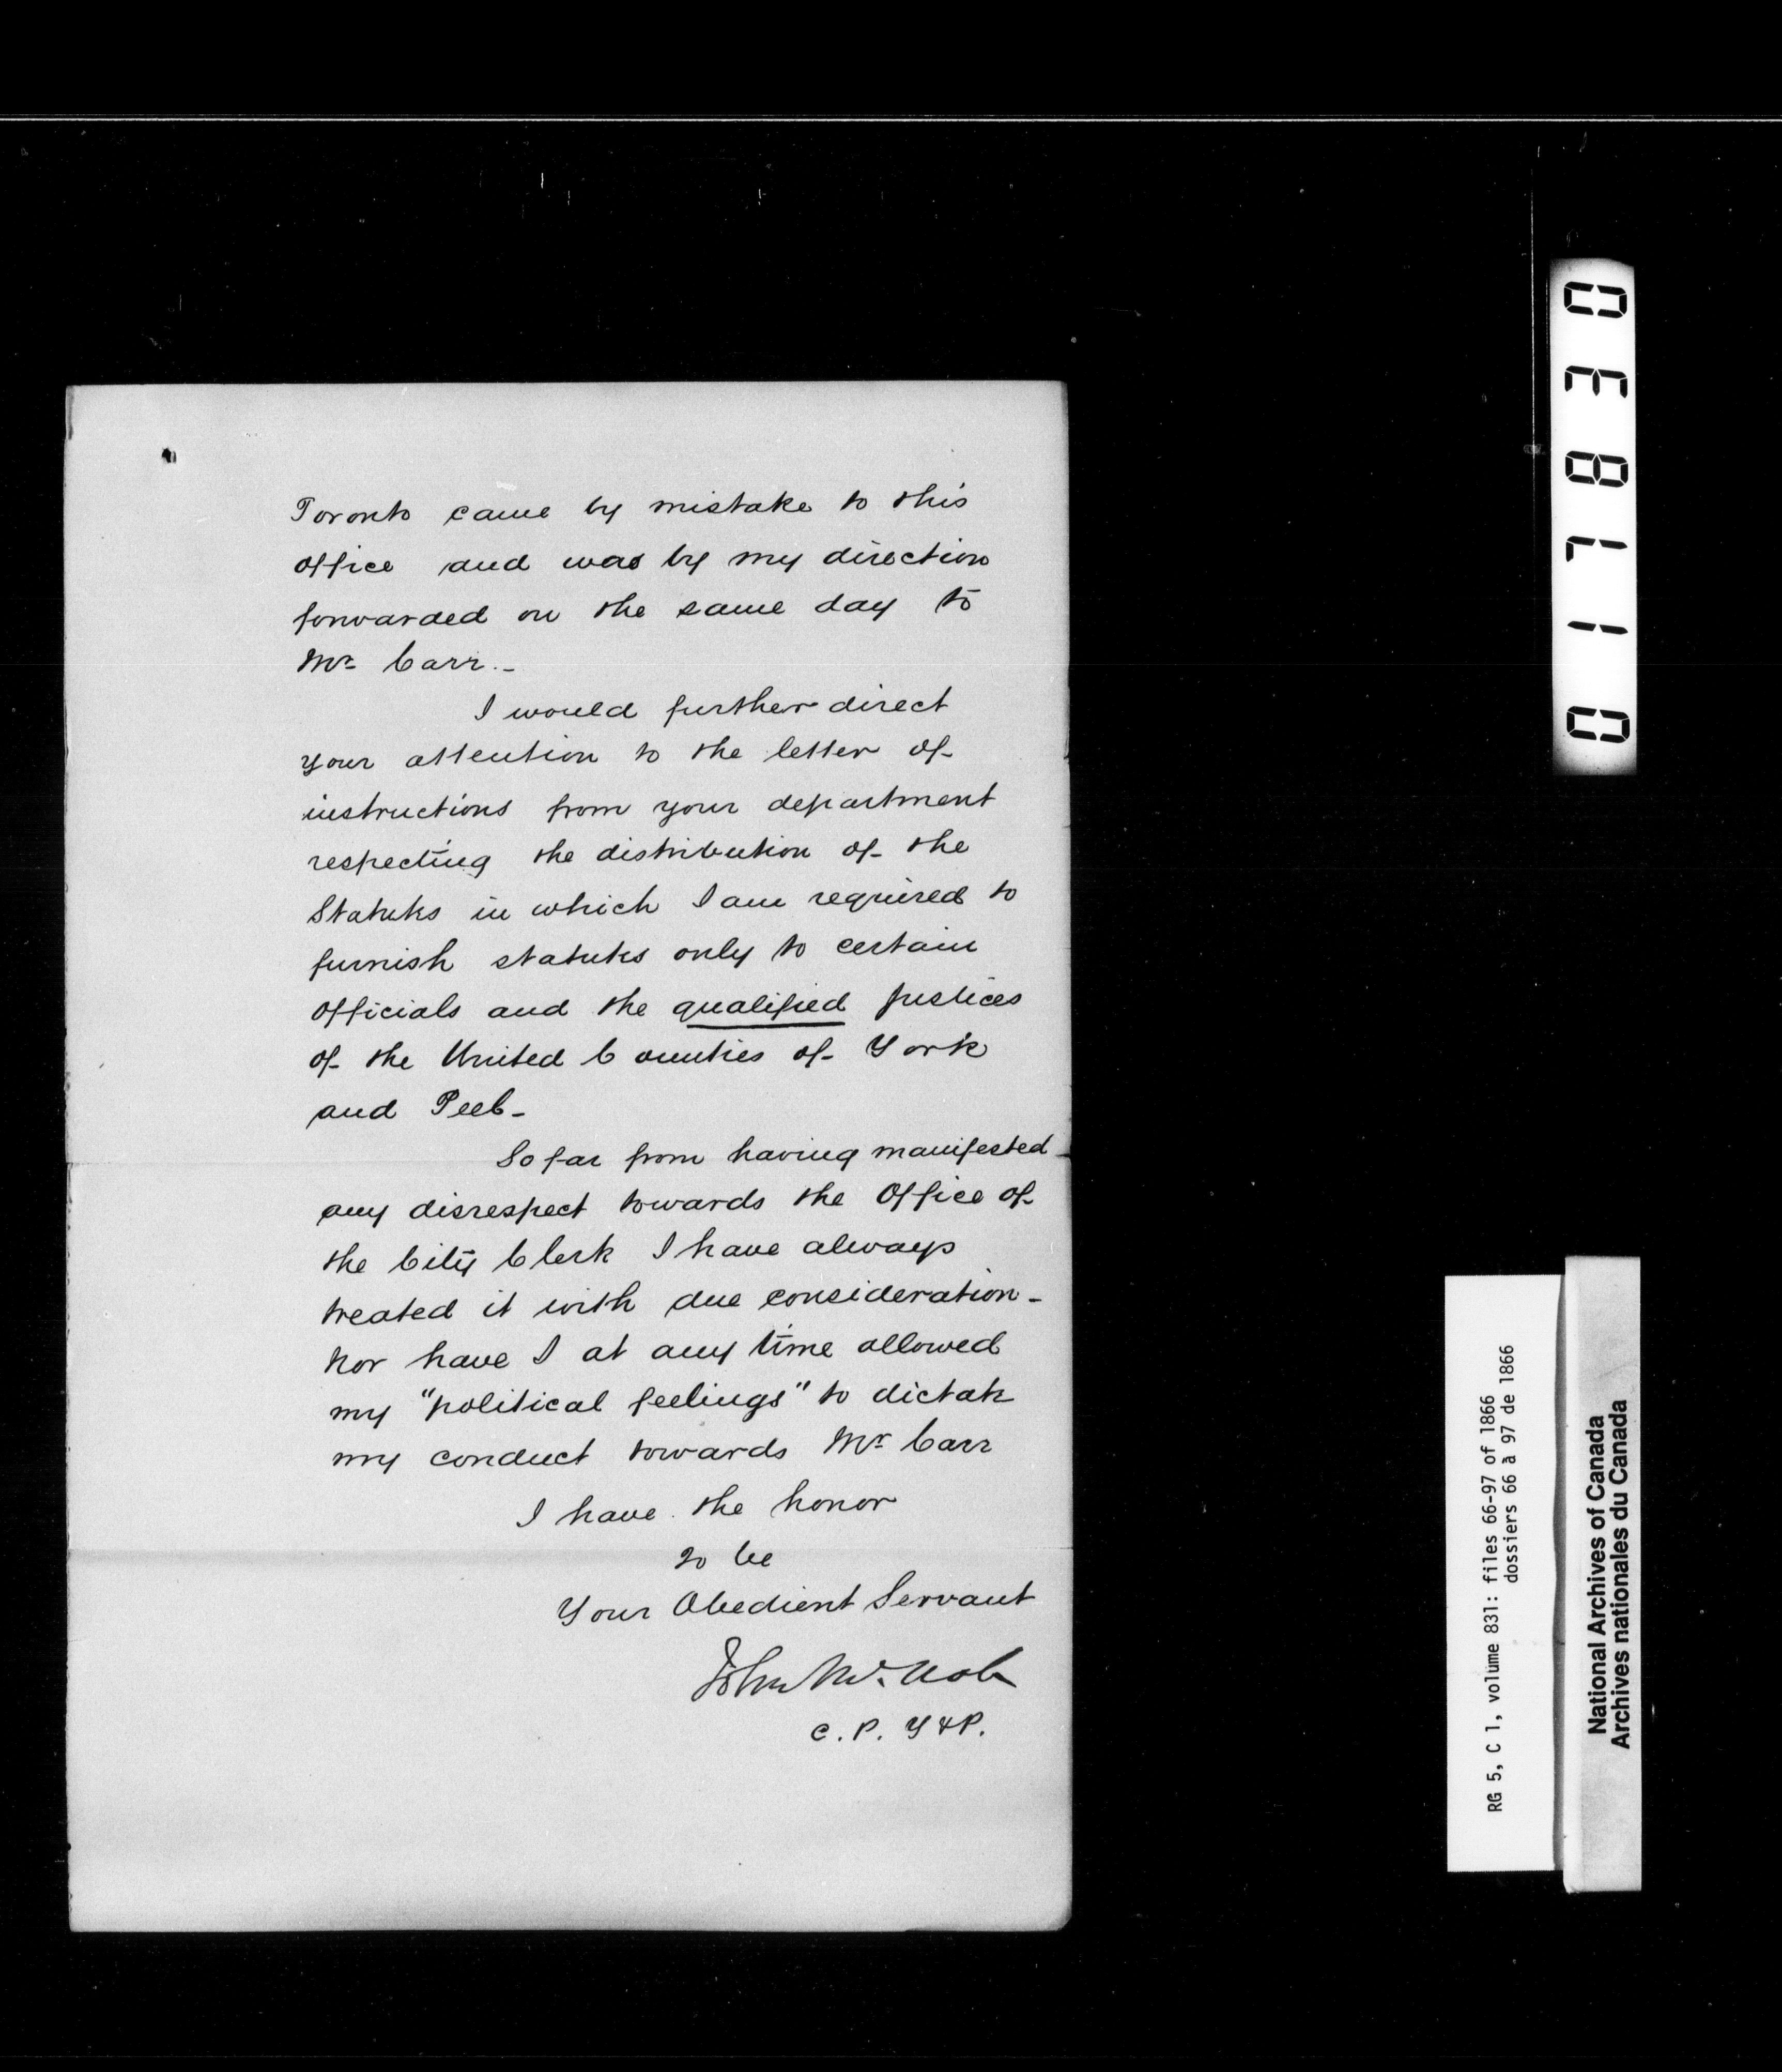 Toronto came by mistake to this
office and was by my direction
forwarded on the same day to
Mr Carr.-
I would further direct
your attention to the letter of
instructions from your department
respecting the distribution of the
Statutes in which I am required to
furnish statutes only to certain
Officials and the qualified Justices
of the United Counties of York
and Peel-
So far from having manifested
any disrespect towards the Office of
the City Clerk I have always
treated it with due consideration-
nor have I at any time allowed
my "political feelings" to dictate
my conduct towards Mr Carr
I have the honor
To be
Your Obedient Servant
John McNab
C. P. Y & P.
017830
RG 5, C 1, volume 831: files 66-97 of 1866
dossiers 66 à 97 de 1866
National Archives of Canada
Archives nationales du Canada